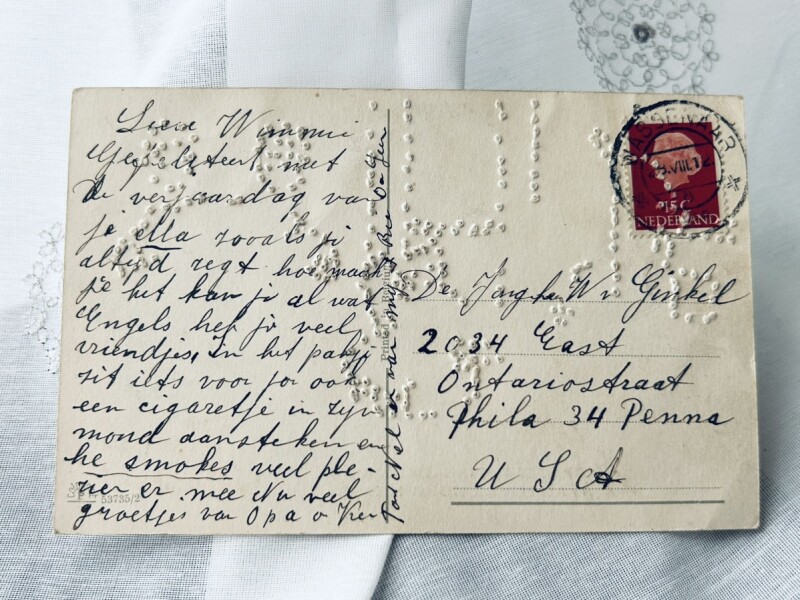 Lieve Wimmie
Gefeliciteert met
de verjaardag van
je ella zooals ji
altijd zegt hoe maak
je het kan ji al wat
Engels heb jo veel
vriendjes, in het pakje
zit iets voor jou ook
een cigaretje in zijn
mond aansteken en
he smokes veel ple-
zier er mee Nu veel
groetjes van Opa v
Printed
53735/2
WASSENAAR
15 c
NEDERLAND
De Jongeheer W v Ginkel
2034 East
Ontariostraat
Phila 34 Penna
U S A